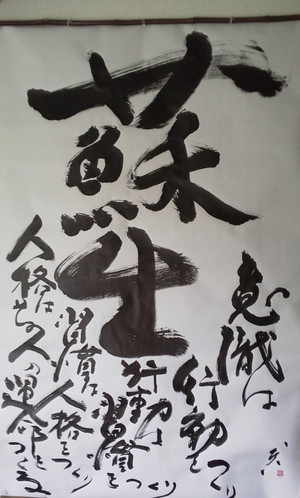 蘇生
意識は
行動をつくり
行動は
習慣をつくり
習慣は
人格をつくり
人格はその人の運命をつくる